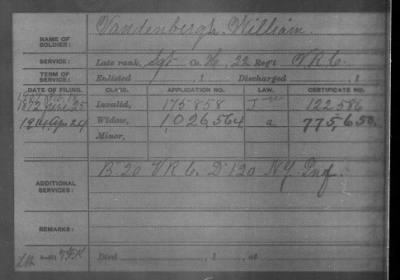 NAME OF SOLDIER: Vandenbergh, William
SERVICE: Late rank, Sgt Co. H, 22 Reg't V.R.C.
TERM OF SERVICE: Enlisted , 1 Discharged , 1
DATE OF FILING. CLASS. APPLICATION NO. LAW. CERTIFICATE NO.
1872 June 25 Invalid, 175858 122586
Apr 24 Widow, 1,026,564 a 775,650
Minor,
ADDITIONAL SERVICES: B 20 V.R.C. D 120 N.Y. Inf.
REMARKS:
Died , 1 , at